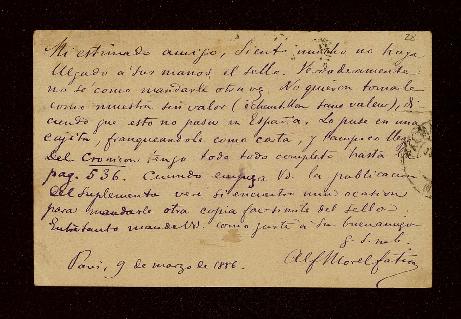 28
Mi estimado amigo, Siento mucho no haya
llegado a sus manos el sello. Verdaderamente
no sé como mandarle otra vez. No quieren tomarle
como muestra sin valor (échantillon sans valeur), di-
ciendo que esto no pasa en España. Lo puse en una
cajita, franqueandole como carta, y tampoco
Del Cronicon tengo todo todo completo hasta
pag. 536. Cuando empieza Vd. la publicacion
del Suplemento veré si encuentro una ocasion
para mandarle otra copia facsimile del sello.
Entretanto mande Vd. como guste a su buen amigo
q. s. m. b.
Paris, 9 de marzo de 1886. Alf Morel Fatio